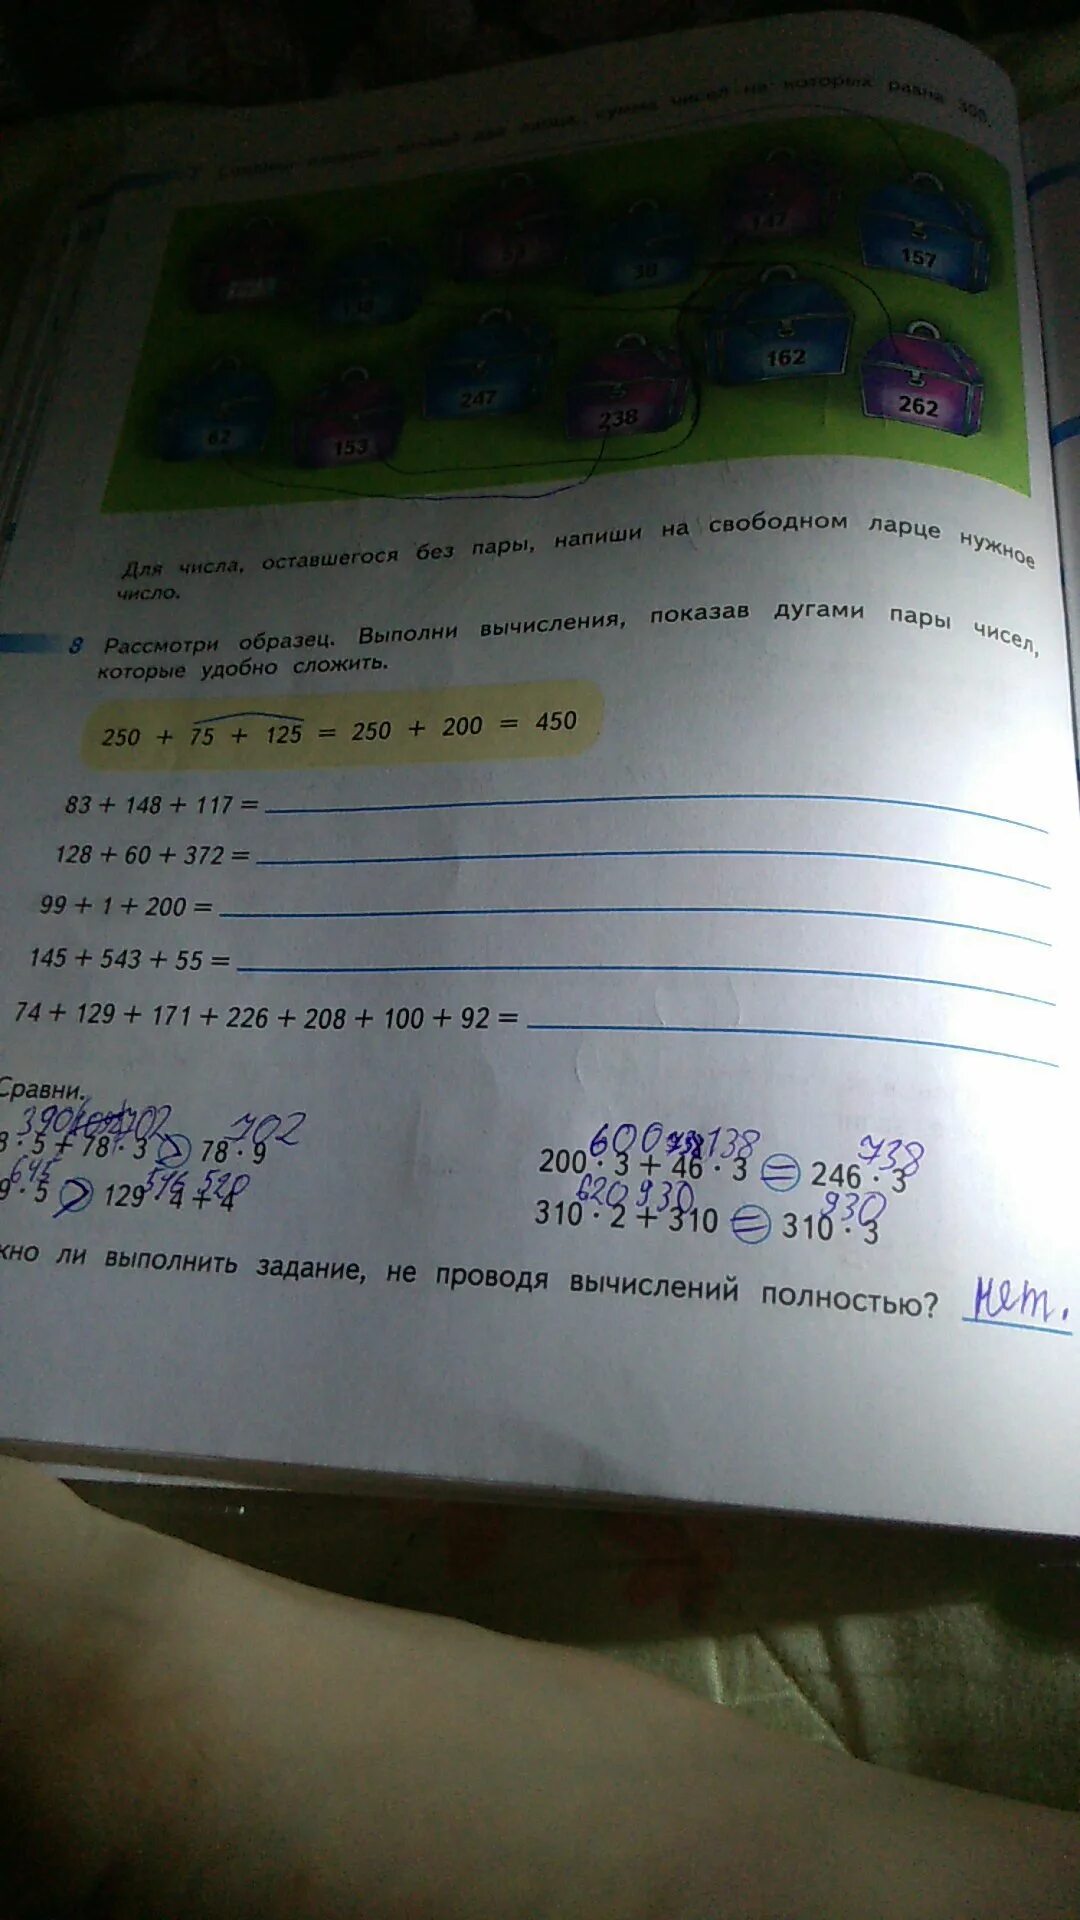 сумма чисел на которых равна 300.
147
38
157
162
247
262
238
62
153
Для числа, оставшегося без пары, напиши на свободном ларце нужное
число.
8 Рассмотри образец. Выполни вычисления, показав дугами пары чисел,
которые удобно сложить.
250 + 75 + 125 = 250 + 200 = 450
83 + 148 + 117 =
128 + 60 + 372 =
99 + 1 + 200 =
145 + 543 + 55 =
74 + 129 + 171 + 226 + 208 + 100 + 92 =
Сравни.
390 702 702
8 · 5 + 78 · 3 > 78 · 9
645 516 520
9 · 5 > 129 · 4 + 4
600 738 138 738
200 · 3 + 46 · 3 = 246 · 3
620 930 930
310 · 2 + 310 = 310 · 3
жно ли выполнить задание, не проводя вычислений полностью? нет.